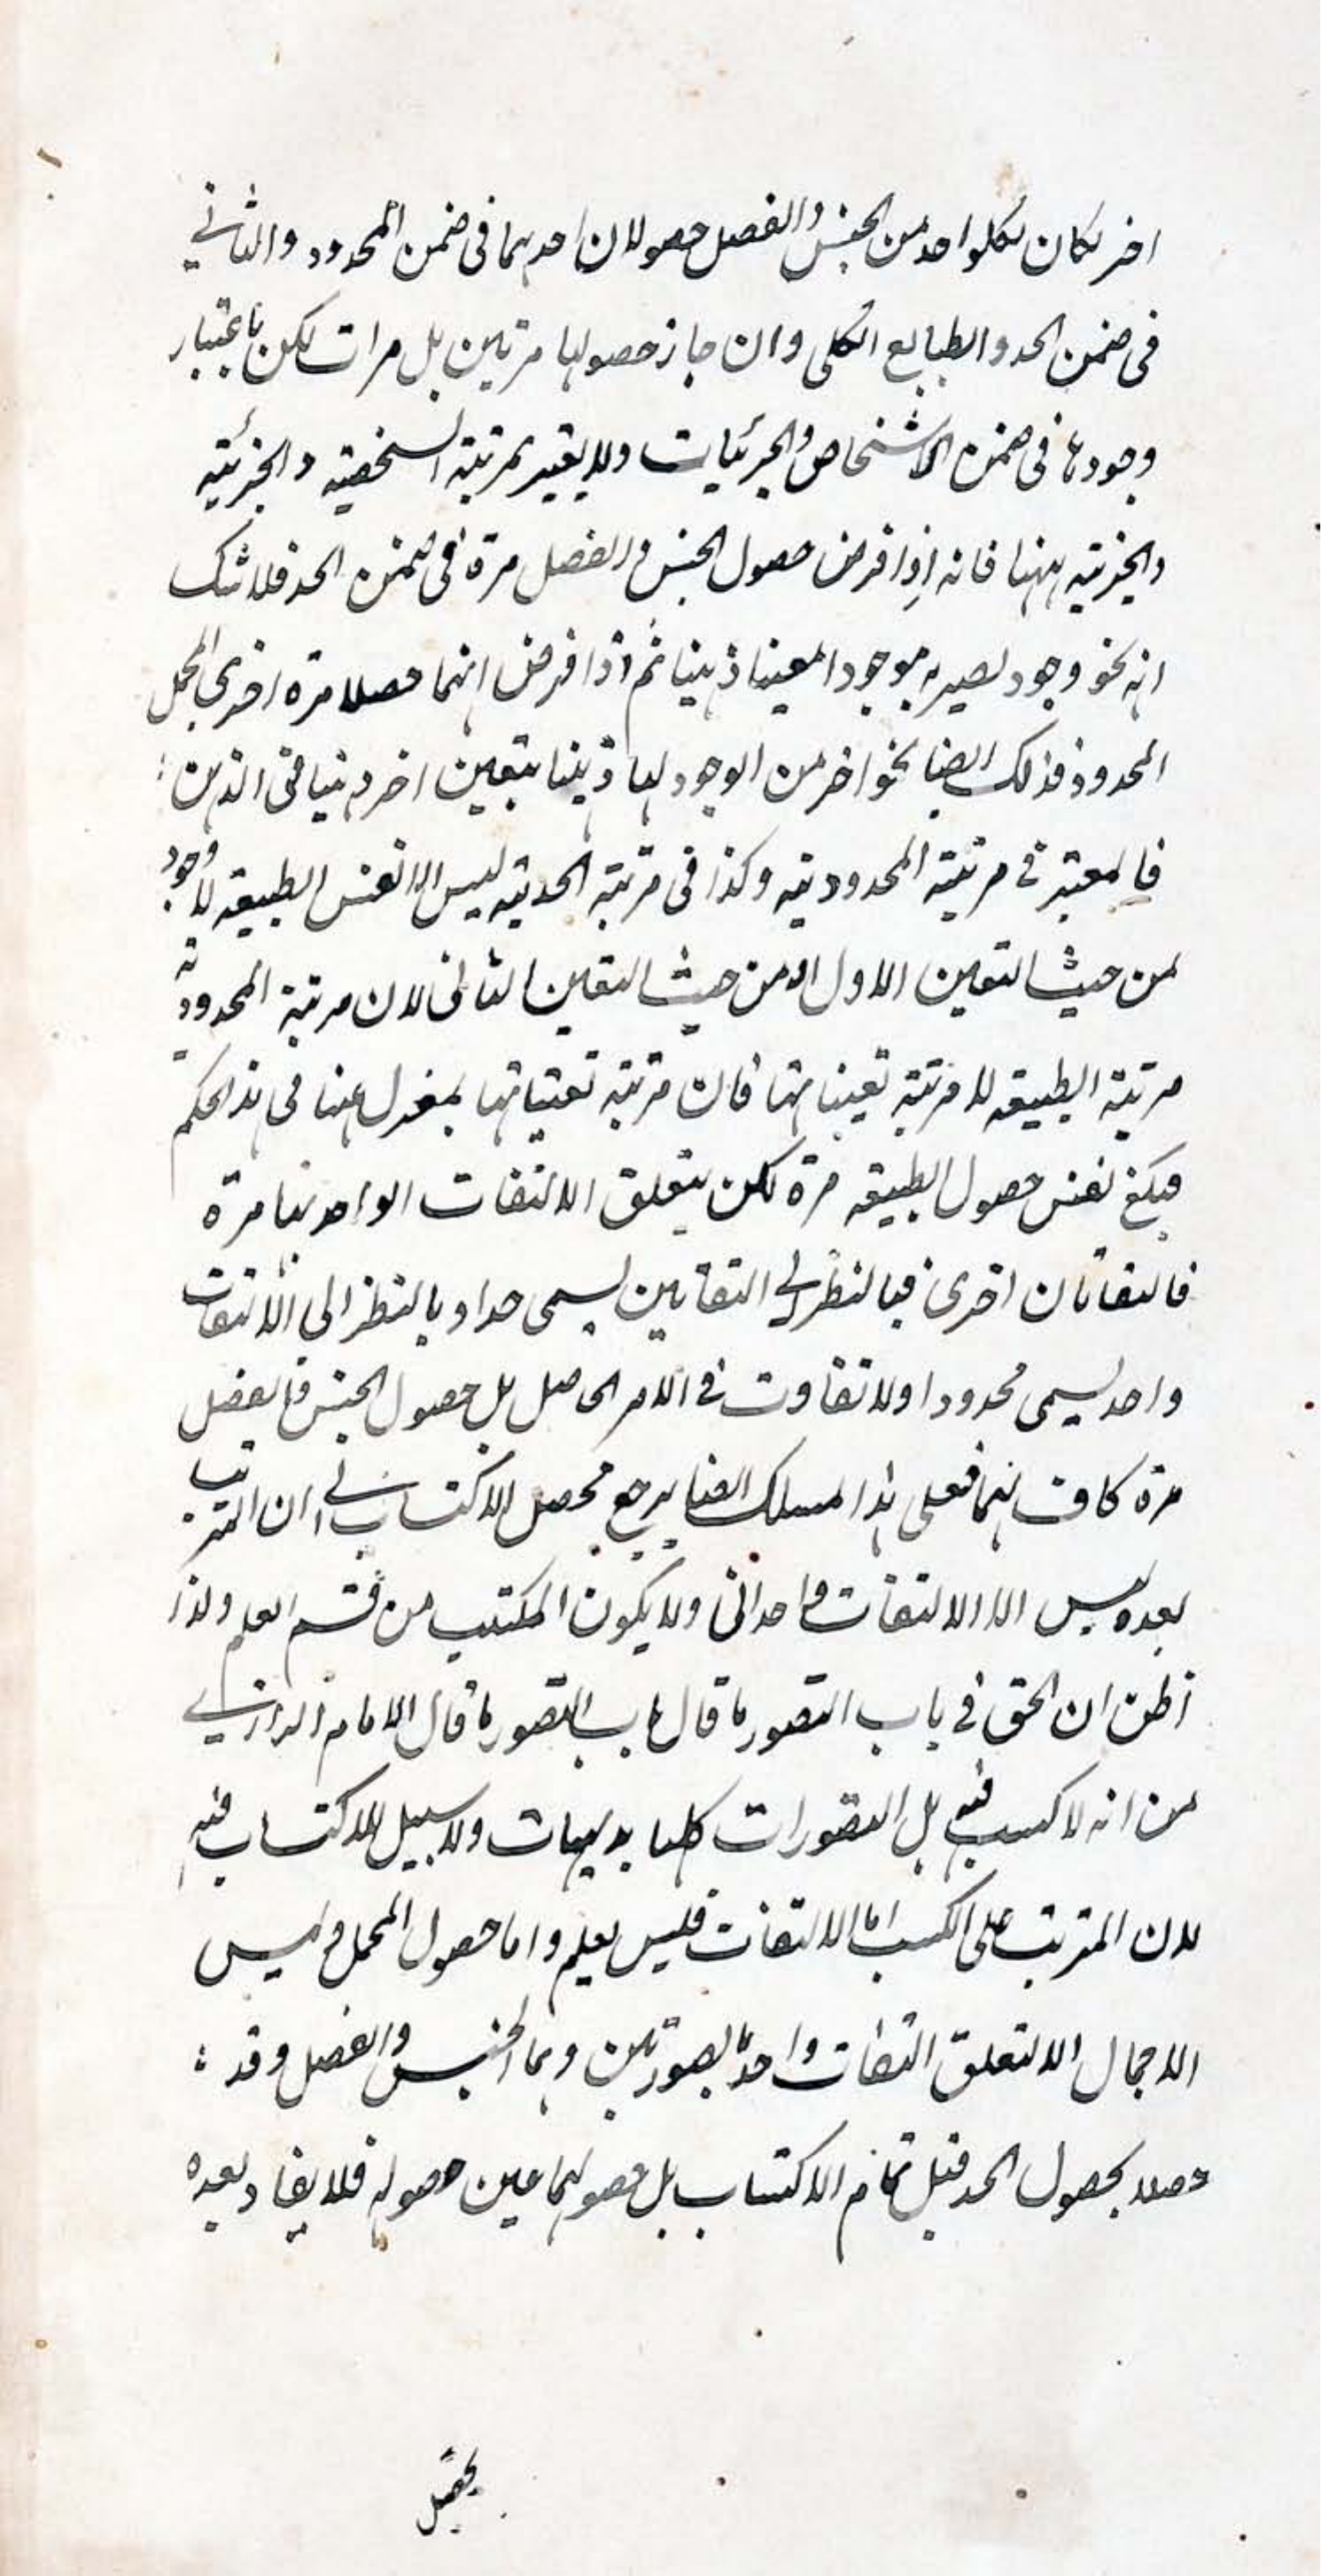 اخر لكان لكلواحد من الجنس والفصل حصولان احدهما في ضمن المحدود والثاني
في ضمن الحد والطبايع الكلى وان جاز حصولها مرتين بل مرات لكن باعتبار
وجودها في ضمن الاشخاص والجزئيات ولا يعتبر بمرتبة الشخصية والجزئية
والجزئية ههنا فانه اذا فرض حصول الجنس والفصل مرة في ضمن الحد فلا شك
انه نحو وجود يصير به موجودا معينا ذهنيا ثم اذا فرض انهما حصلا مرة اخرى المجمل
المحدود فذلك ايضا نحو اخر من الوجود لها ذهنيا بتعين اخر ذهنيا في الذهن
فالمعتبر في مرتبة المحدودية وكذا في مرتبة الحدية ليس الا نفس الطبيعة لا وجود
من حيث التعين الاول او من حيث التعين الثاني لان مرتبة المحدودية
مرتبة الطبيعة لا مرتبة تعيناتها فان مرتبة تعيناتها بمعزل عنها في هذا الحكم
فيكفي نفس حصول الطبيعة مرة لكن يتعلق الالتفات الواحد بها مرة
فالتفاتان اخرى فبالنظر الى التفاتين يسمى حدا وبالنظر الى الالتفات
واحد يسمى محدودا ولا تفاوت في الامر الحاصل بل حصول الجنس والفصل
مرة كاف لهما فعلى هذا المسلك ايضا يرجع محصل الاكتساب الى ان المترتب
بعده ليس الا الالتفات واحدانى ولا يكون المكتسب من قسم العلم ولذا
اظن ان الحق في باب التصور ما قال باب التصور ما قال الامام الرازي
من انه لا كسب فيه بل التصورات كلها بديهيات ولا سبيل للاكتساب فيه
لان المترتب على الكسب اما الالتفات فليس بعلم واما حصول المجمل وليس
الاجمال الا لتعلق التفات واحد بصورتين وهما الجنس والفصل وقد
حصلا بحصول الحد قبل تمام الاكتساب بل حصولهما عين حصوله فلا يفاد بعده
تحصيل